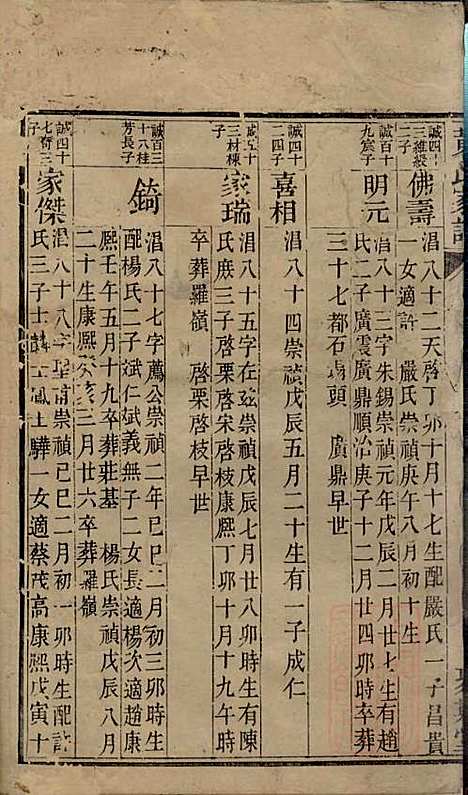 誠四
三維綬
二子
佛壽
淐八十二天啓丁卯十月十七生配嚴氏一子昌貴
一女適許 嚴氏崇禎庚午八月初十生
誠四十
九宸子
明元
淐八十三字朱錫崇禎元年戊辰二月廿七生有趙
氏二子廣霞廣鼎順治庚子十二月廿四卯時卒葬
三十七都石 頭 廣鼎早世
誠四十
二四子
喜相
淐八十四崇禎戊辰五月二十生有一子成仁
誠五十
三材棟
子
家瑞
淐八十五字在茲崇禎戊辰七月廿八卯時生有陳
氏庶三子啓栗啓宋啓枝康熙丁卯十月十九午時
卒葬羅嶺 啓栗啓枝早世
誠百三
十八桂
芳長子
錡
淐八十七字薦公崇禎二年己巳二月初三卯時生
配楊氏二子斌仁斌義無子二女長適楊次適趙康
熙壬午五月十九卒葬莊基 楊氏崇禎戊辰八月
二十生康熙癸亥三月廿六卒葬羅嶺
誠四十
七奇三
子
家傑
淐八十八字聖甫崇禎己巳二月初一卯時生配許
氏三子士麟士鳳士驊一女適蔡茂高康熙戊寅十